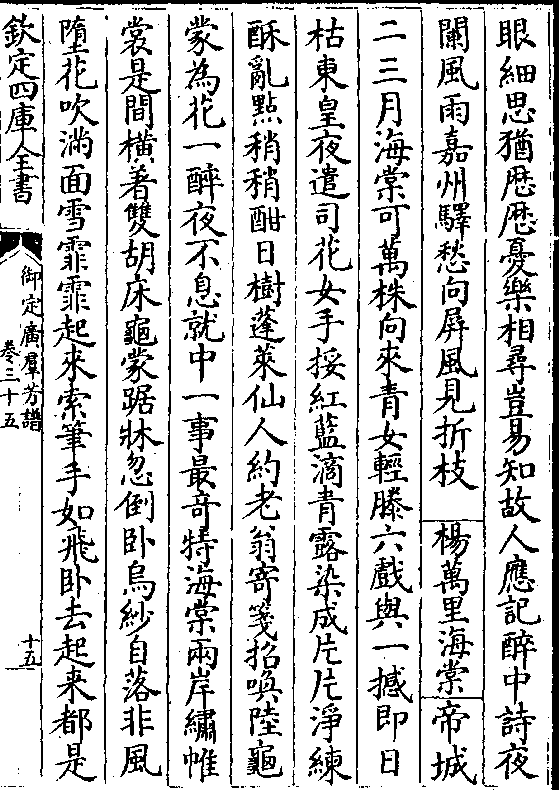 眼細思猶歴歴憂樂相尋豈易知故人應記醉中詩夜
闌風雨嘉州驛愁向屏風見折枝 楊萬里海棠 帝城
二三月海棠可萬株向來青女輕滕六戲與一撼即日
枯東皇夜遣司花女手挼紅藍滴青露染成片片淨練
酥亂㸃稍稍酣日樹蓬萊仙人約老翁寄箋招喚陸龜
蒙為花一醉夜不息就中一事最竒特海棠兩岸繡帷
裳是間横著雙胡床龜蒙踞牀忽倒卧烏紗自落非風
墮花吹滿面雪霏霏起来索筆手如飛卧去起来都是
欽定四庫全書
御定廣羣芳譜
卷三十五
十五